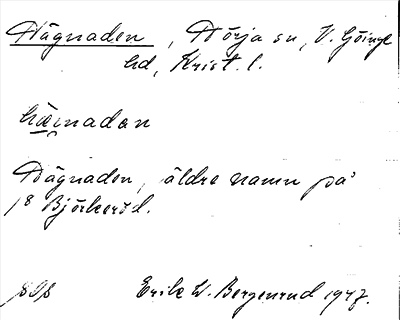 Hägnaden, Hörja sn, V. Göinge
hd, Krist. l.
hä̭i̭nadan
Hägnaden, äldre namn på
1⁸ Björkeröd.
Erik W. Bergenrud 1947.